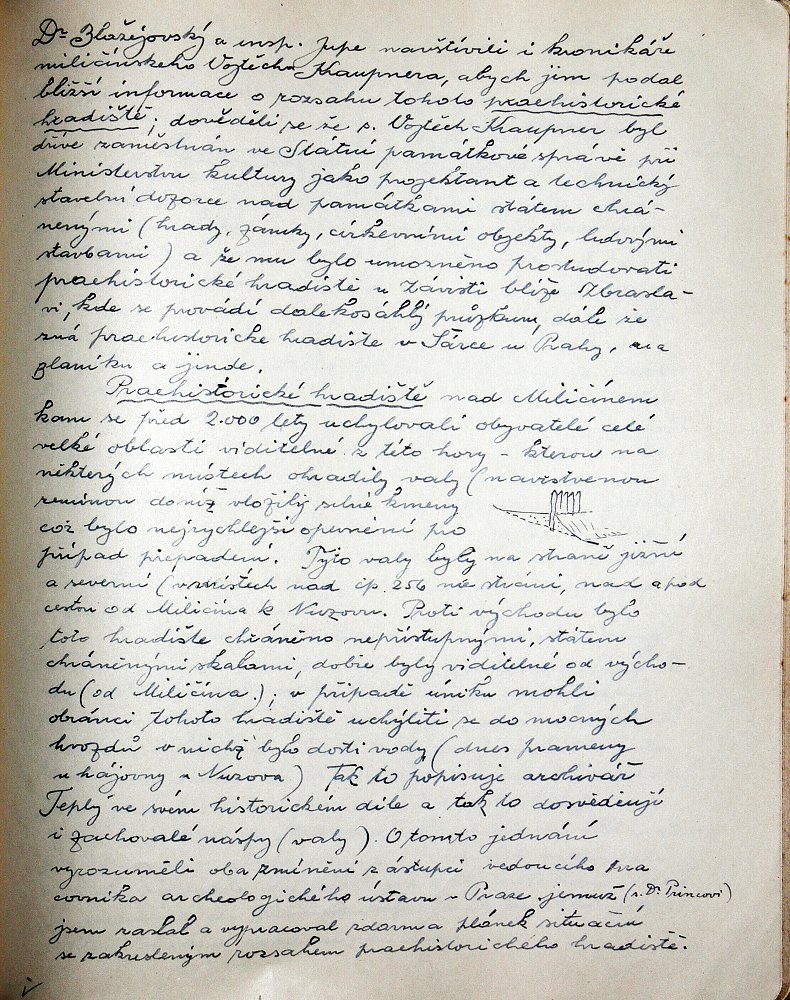 Dr Blažéjovský a insp. Jupe navštívili i kronikáře
miličínského Vojtěcha Kraupnera, abych jim podal
bližší informace o rozsahu tohoto praehistorické
hradiště; dověděli se že s. Vojtěch Kraupner byl
dříve zaměstnán ve Státní památkové správě při
Ministerstvu kultury jako projektant a technický
stavební dozorce nad památkami státem chrá-
nenými (hrady, zámky, církevními objekty, lidovými
stavbami) a že mu bylo umožněno prostudovati
praehistorické hradiště u Závisti blíže Zbrasla-
vi, kde se provádí dalekosáhlý průzkum, dále že
zná praehistorické hradiště v Šárce u Prahy, na
planíku a jinde.
Praehistorické hradiště nad Miličínem
kam se před 2.000 lety uchylovali obyvatelé celé
velké oblasti viditelné z této hory - kterou na
některých místech ohradily valy (navrstvenou
zeminou do níž vložily silné kmeny
což bylo nejrychlejší opevnění pro
případ přepadení. Tyto valy byly na straně jižní
a severní (v místech nad čp. 256 ve stráni, nad a pod
cestou od Miličína k Nuzovu. Proti východu bylo
toto hradiště chráněno nepřístupnými, státem
chráněnými skalami, dobře byly viditelné od výcho-
du (od Miličína.); v případě úniku mohli
obránci tohoto hradiště uchýliti se do mocných
hvozdů v nichž bylo dosti vody (dnes prameny
u hájovny u Nuzova) Tak to popisuje archivář
Teplý ve svém historickém díle a tak to dosvědčují
i zachovalé náspy (valy). O tomto jednání
vyrozuměli oba zmínění zástupci vedoucího pra
covníka archeologického ústavu v Praze jemuž (s. Dr. Princovi)
jsem zaslal a vypracoval zdarma plánek situační
se zakresleným rozsahem praehistorického hradiště.